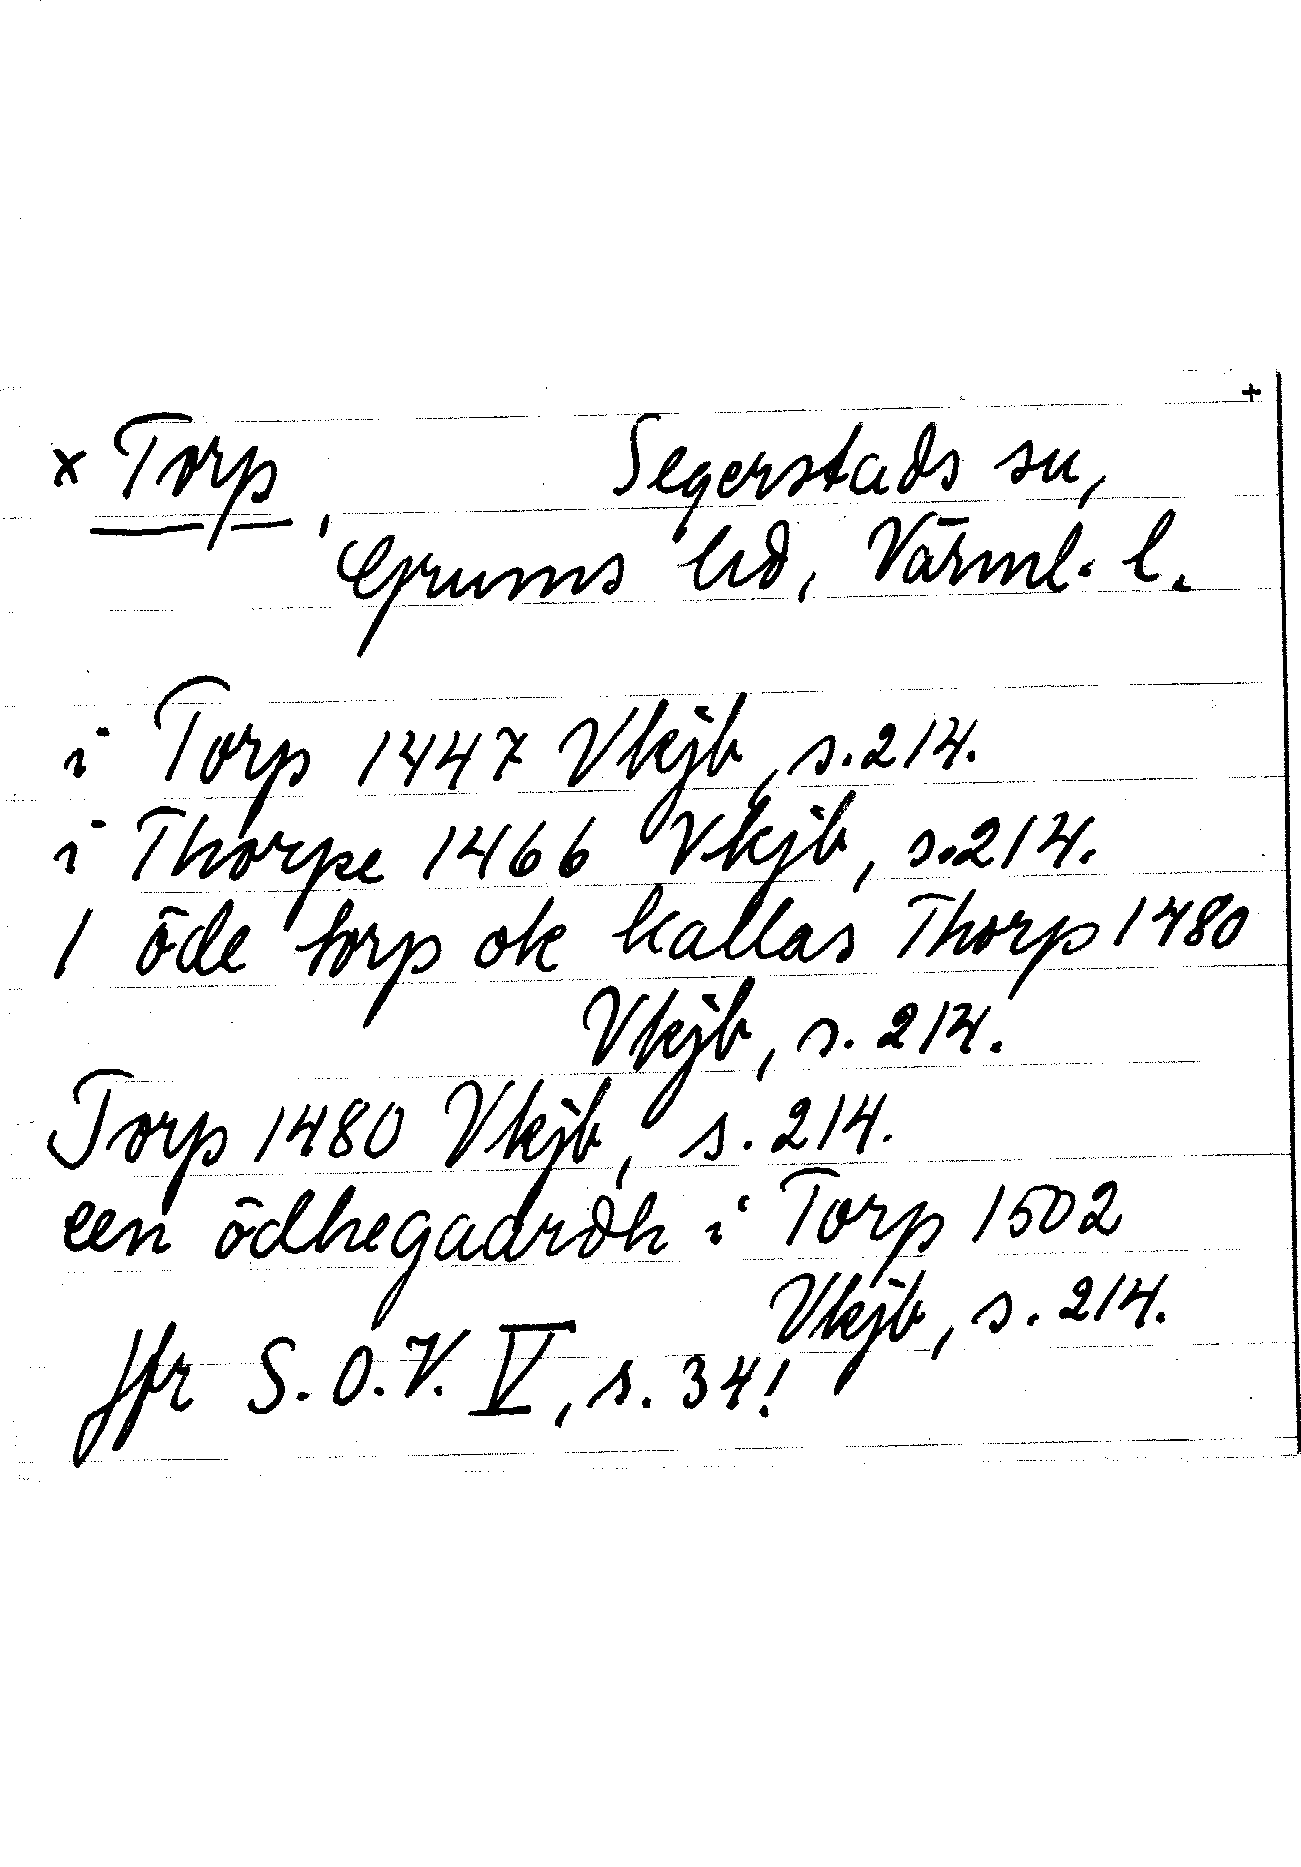 +
x Torp, Segerstads sn,
Grums hd, Värml. l.
i Torp 1447 Vkjb, s. 214.
i Thorpe 1466 Vkjb, s. 214.
1 öde torp ok kallas Thorp 1480
Vkjb, s. 214.
Torp 1480 Vkjb, s. 214.
een ödhegaardh i Torp 1502
Vkjb, s. 214.
Jfr S.O.V. V, s. 34!